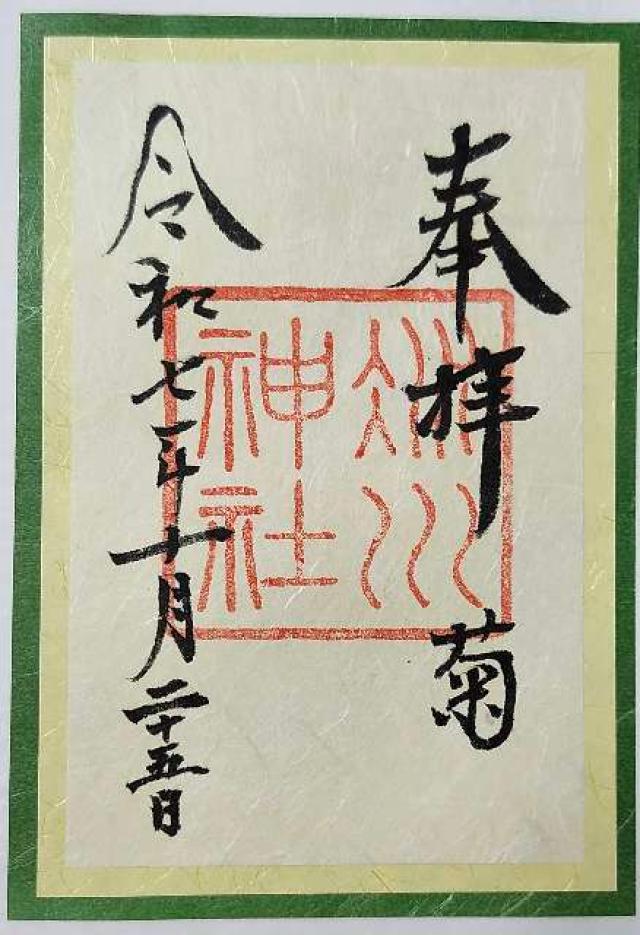 奉拝 菊
冰川
神社
令和七年十月二十五日